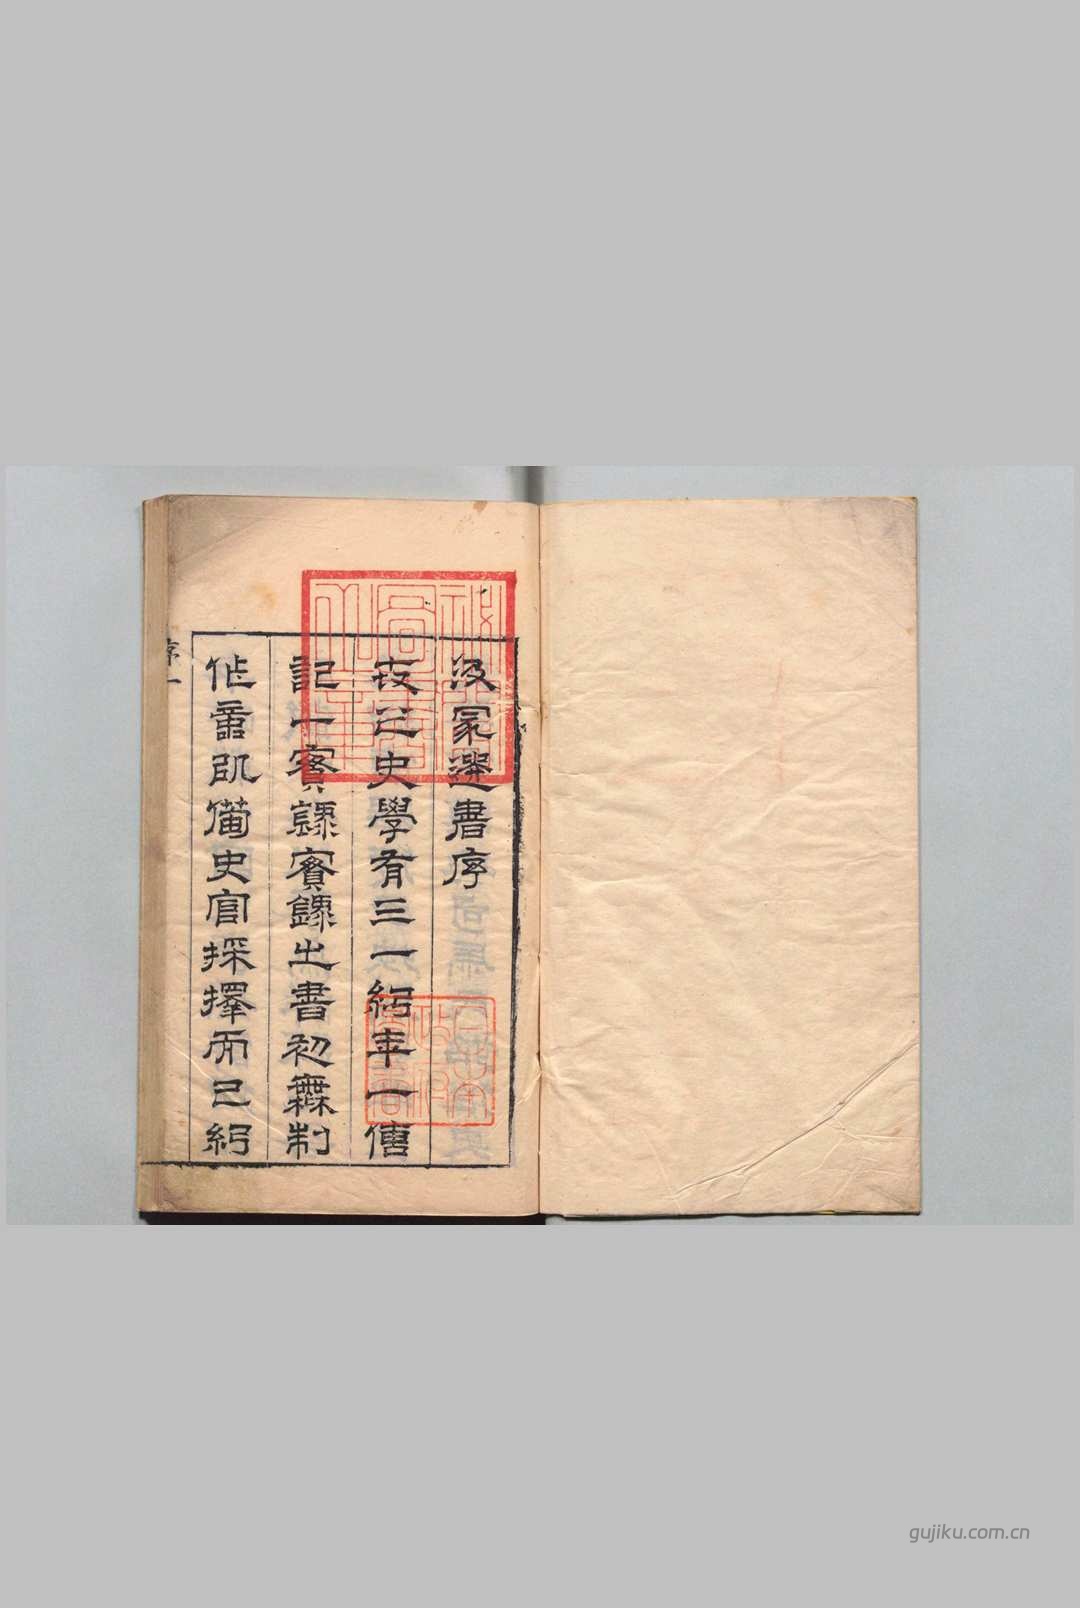 汲冢選書序
史學有三一紀年一傳
記一實錄實錄之書初無制
作意 備史官採擇而已紀
序一
gujiku.com.cn